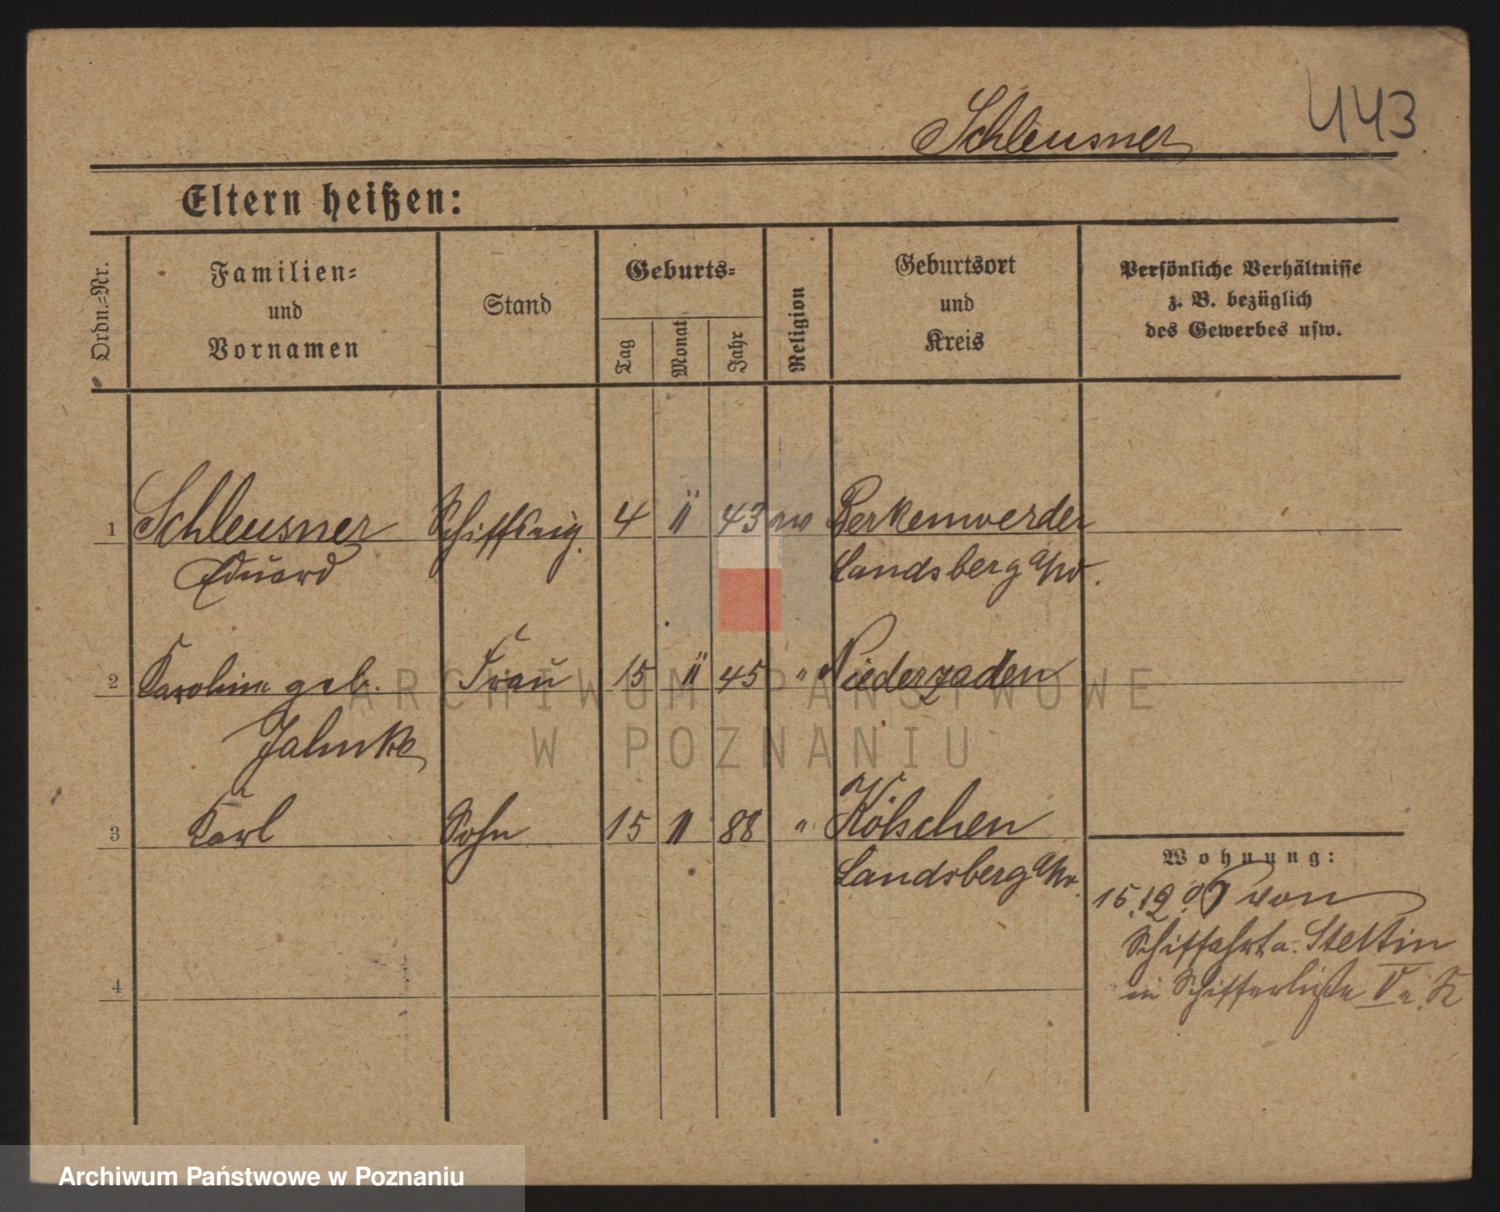 443
Schleusner
Eltern heißen:
Ordn.-Nr.
Familien-
und
Vornamen
Stand
Geburts-
Tag
Monat
Jahr
Religion
Geburtsort
und
Kreis
Persönliche Verhältnisse
z. B. bezüglich
des Gewerbes usw.
1 Schleusner Schiffseig. 4 11 43 ev Berkenwerder
Eduard Landsberg a/W.
2 Karoline geb. Frau 15 11 45 " Niederzaden
Jahnke
3 Karl Sohn 15 11 88 " Kölschen
Landsberg a/W.
Wohnung:
15.12.07 von
Schiffahrt a. Stettin
4
in Schifferliste V
ARCHIWUM PAŃSTWOWE
W POZNANIU
Archiwum Państwowe w Poznaniu